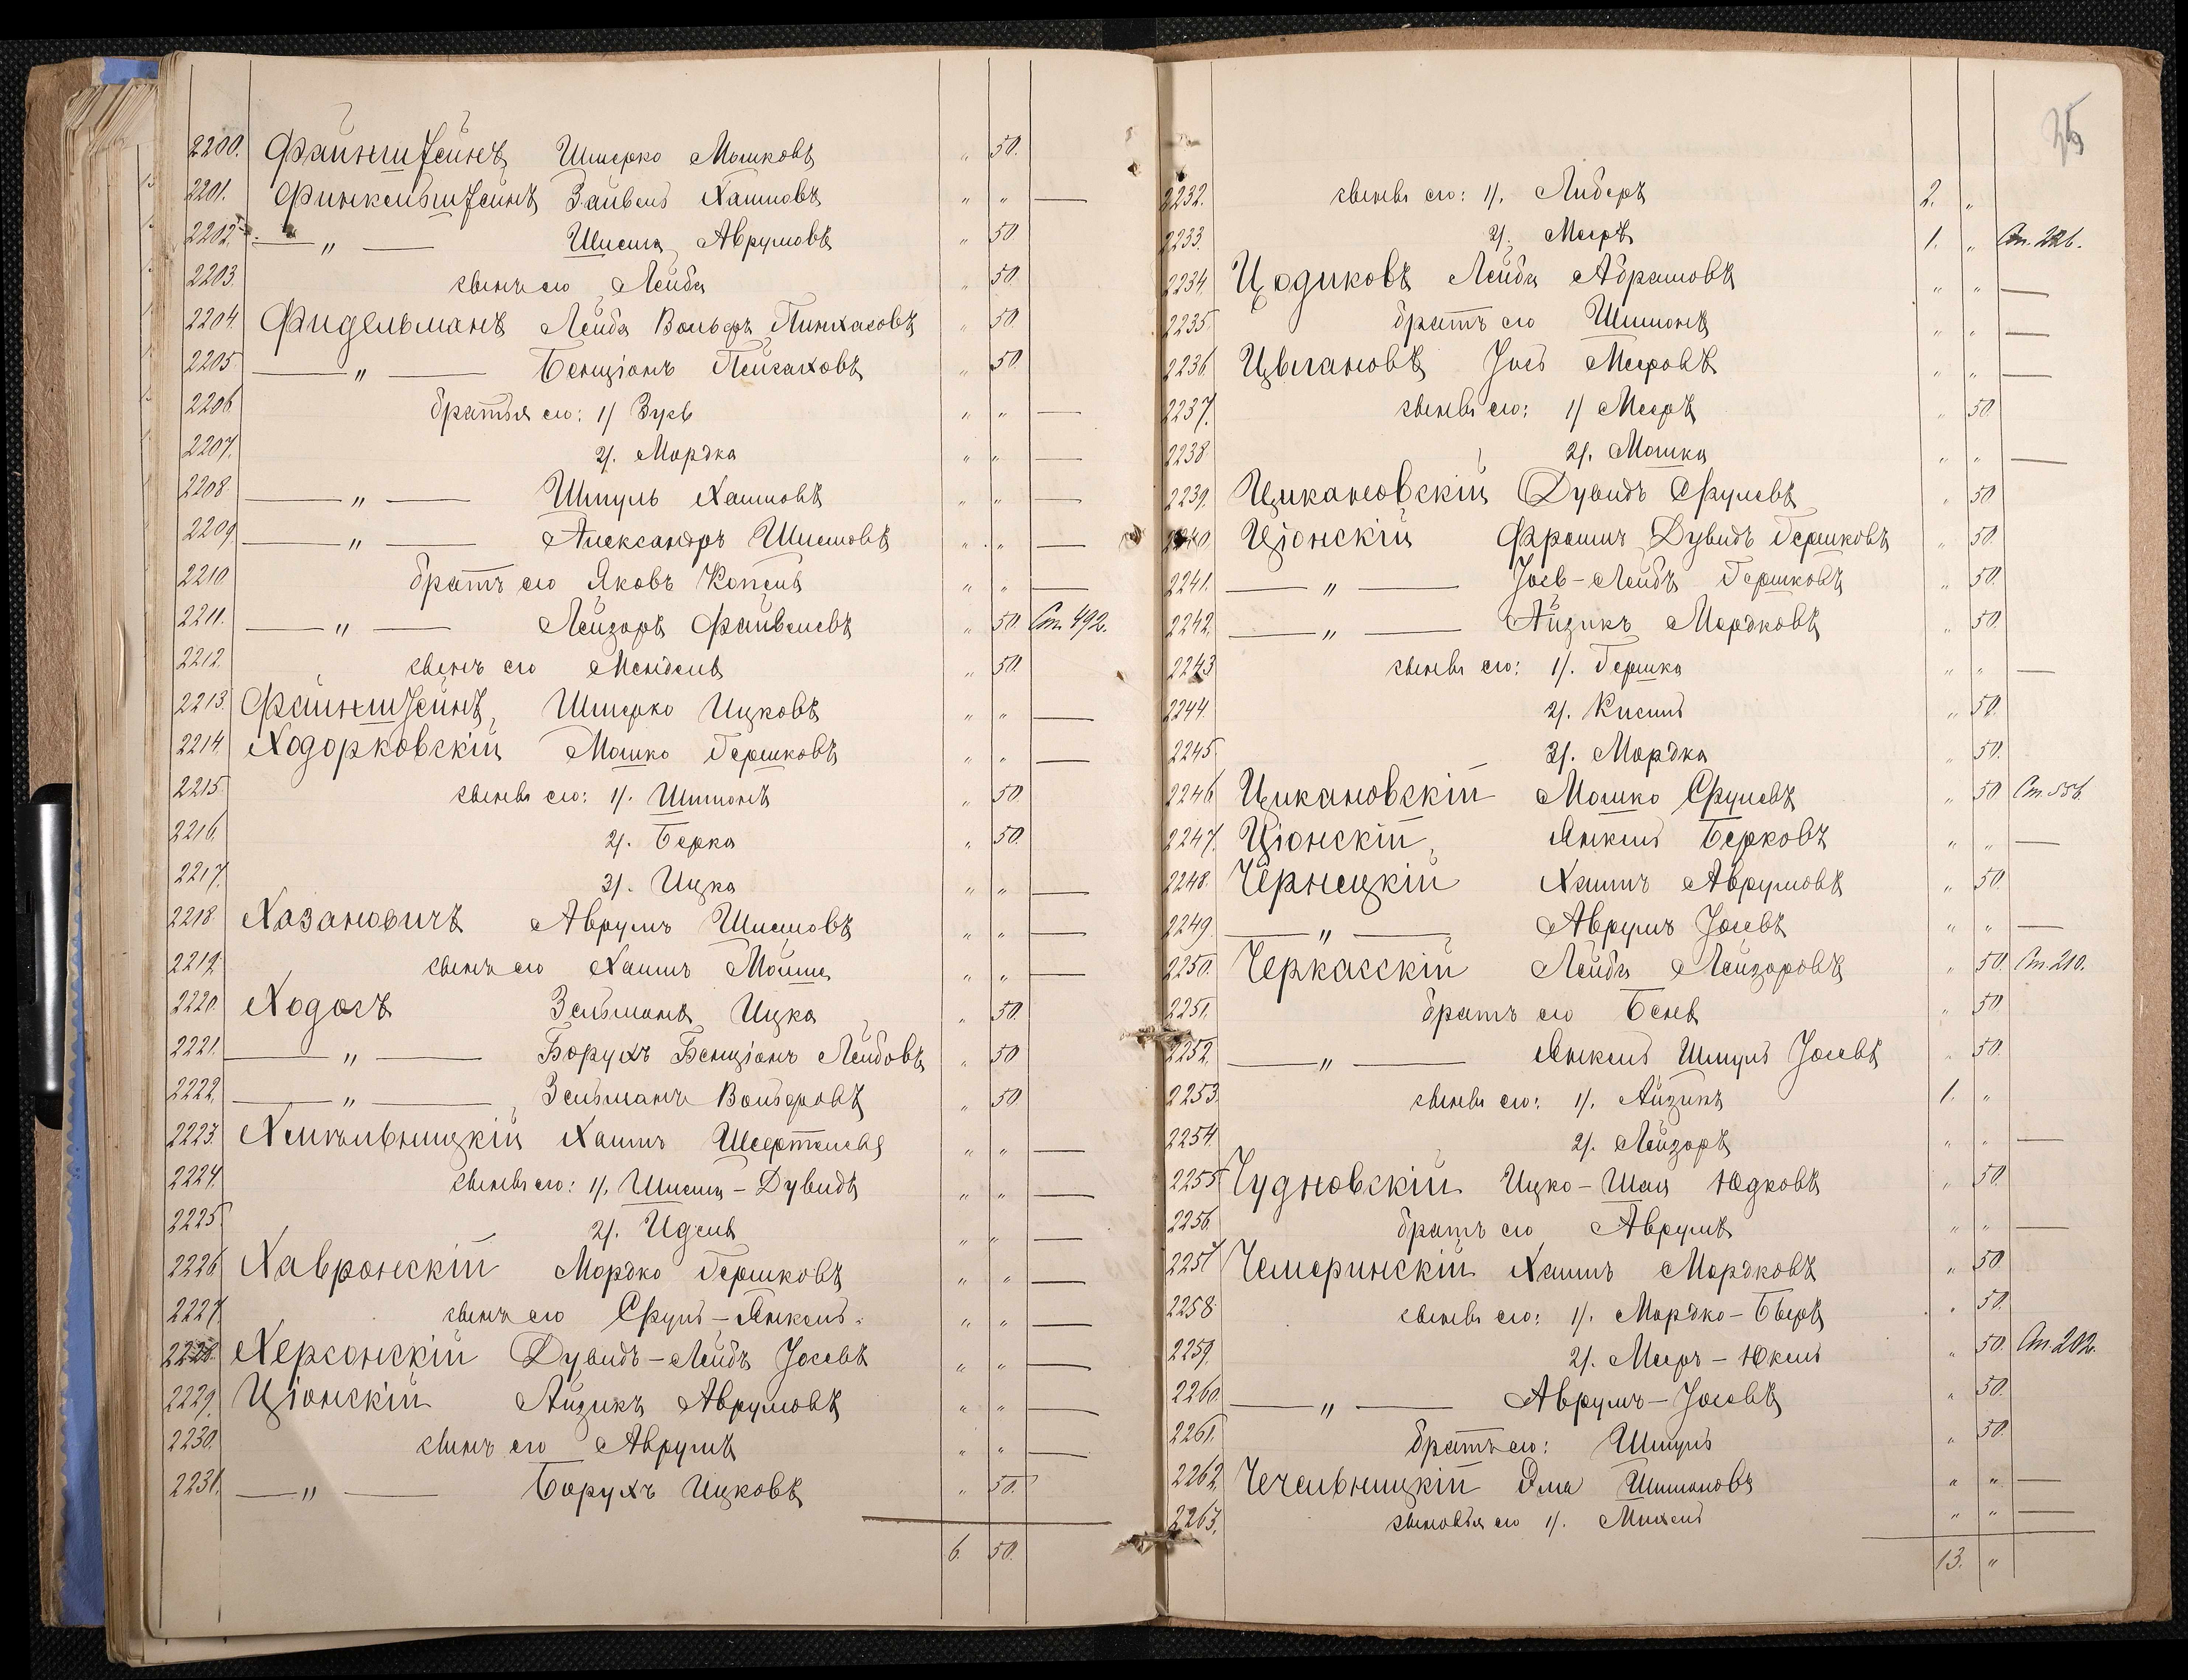 2200. Файнштейнъ Шмерко Мошковъ " 50.
2201. Финкельштейнъ Зайвель Хаимовъ " " —
2202. — " — Шлема Аврумовъ " 50
2203. сынъ его Лейба " 50.
2204. Фидельманъ Лейба Вольфъ Пинхасовъ " 50.
2205 — " — Бенціонъ Пейсаховъ " 50
2206 братья его: 1/ Зусь " " —
2207. 2/. Мордка " " —
2208. — " — Шмуль Хаимовъ " " —
2209 — " — Александръ Шлемовъ " " —
2210 братъ его Яковъ Копель " " —
2211. — " — Лейзоръ Файвелевъ " 50. Ст. 492.
2212. сынъ его Мендель " 50.
2213. Файнштейнъ, Шмерко Ицковъ " " —
2214. Ходорковскій Мошко Гершковъ " " —
2215. сыновья его: 1/. Шимонъ " 50.
2216. 2/. Берка " 50.
2217. 3/. Ицка " " —
2218. Хазановичъ Аврумъ Шлемовъ " " —
2219. сынъ его Хаимъ Мойше " " —
2220. Ходосъ Зельманъ Ицка " 50.
2221. — " — Борухъ Бенціонъ Лейбовъ " 50
2222. — " — Зельманъ Вольфовъ " 50
2223. Хмельницкій Хаимъ " " —
2224. сыновья его: 1/. Шлема-Дувидъ " " —
2225. 2/. Идель " " —
2226 Хавронскій Мордко Гершковъ " " —
2227. сынъ его Сруль-Янкель. " " —
2228. Херсонскій Дувидъ-Лейбъ Іосевъ " " —
2229. Ціонскій Айзикъ Аврумовъ " " —
2230. сынъ его Аврумъ " " —
2231. — " — Борухъ Ицковъ " 50.
6. 50.
25
2232. сыновья его: 1/. Либеръ 2. "
2233. 2/. Мееръ 1. " Ст. 226.
2234. Цодиковъ Лейба Абрамовъ " " —
2235. братъ его Шимонъ " " —
2236 Цыгановъ Іось Мееровъ " " —
2237. сыновья его: 1/ Мееръ " 50
2238 2/. Мошка " " —
2239. Цикановскій Дувидъ Срулевъ " 50
2240. Ціонскій Фроимъ Дувидъ Гершковъ " 50.
2241. — " — Іось-Лейбъ Гершковъ " 50.
2242. — " — Айзикъ Мордковъ " 50.
2243 сыновья его: 1/. Гершка " " —
2244. 2/. Кисиль " 50.
2245. 3/. Мордка " 50.
2246 Цикановскій Мошко Срулевъ " 50 Ст. 556.
2247. Ціонскій, Янкель Берковъ " " —
2248. Чернецкій Хаимъ Аврумовъ " 50.
2249. — " — Аврумъ Іосевъ " " —
2250. Черкасскій Лейба Лейзоровъ " 50. Ст. 210.
2251. братъ его Бень " 50
2252. — " — Янкель Шмуль Іосевъ " 50.
2253. сыновья его: 1/. Айзикъ 1. "
2254. 2/. Лейзоръ " " —
2255 Чудновскій Ицко-Шая Юдковъ " 50.
2256. братъ его Аврумъ " " —
2257 Чемеринскій Хаимъ Мордковъ " 50
2258. сыновья его: 1/. Мордко-Беръ " 50.
2259. 2/. Мееръ-Юкель " 50. Ст. 202.
2260. — " — Аврумъ-Іосевъ " 50.
2261. братъ его: Шмуль " 50.
2262. Чечельницкій Эма Шимоновъ " " —
2263. сыновья его 1/. Михель " " —
13. "